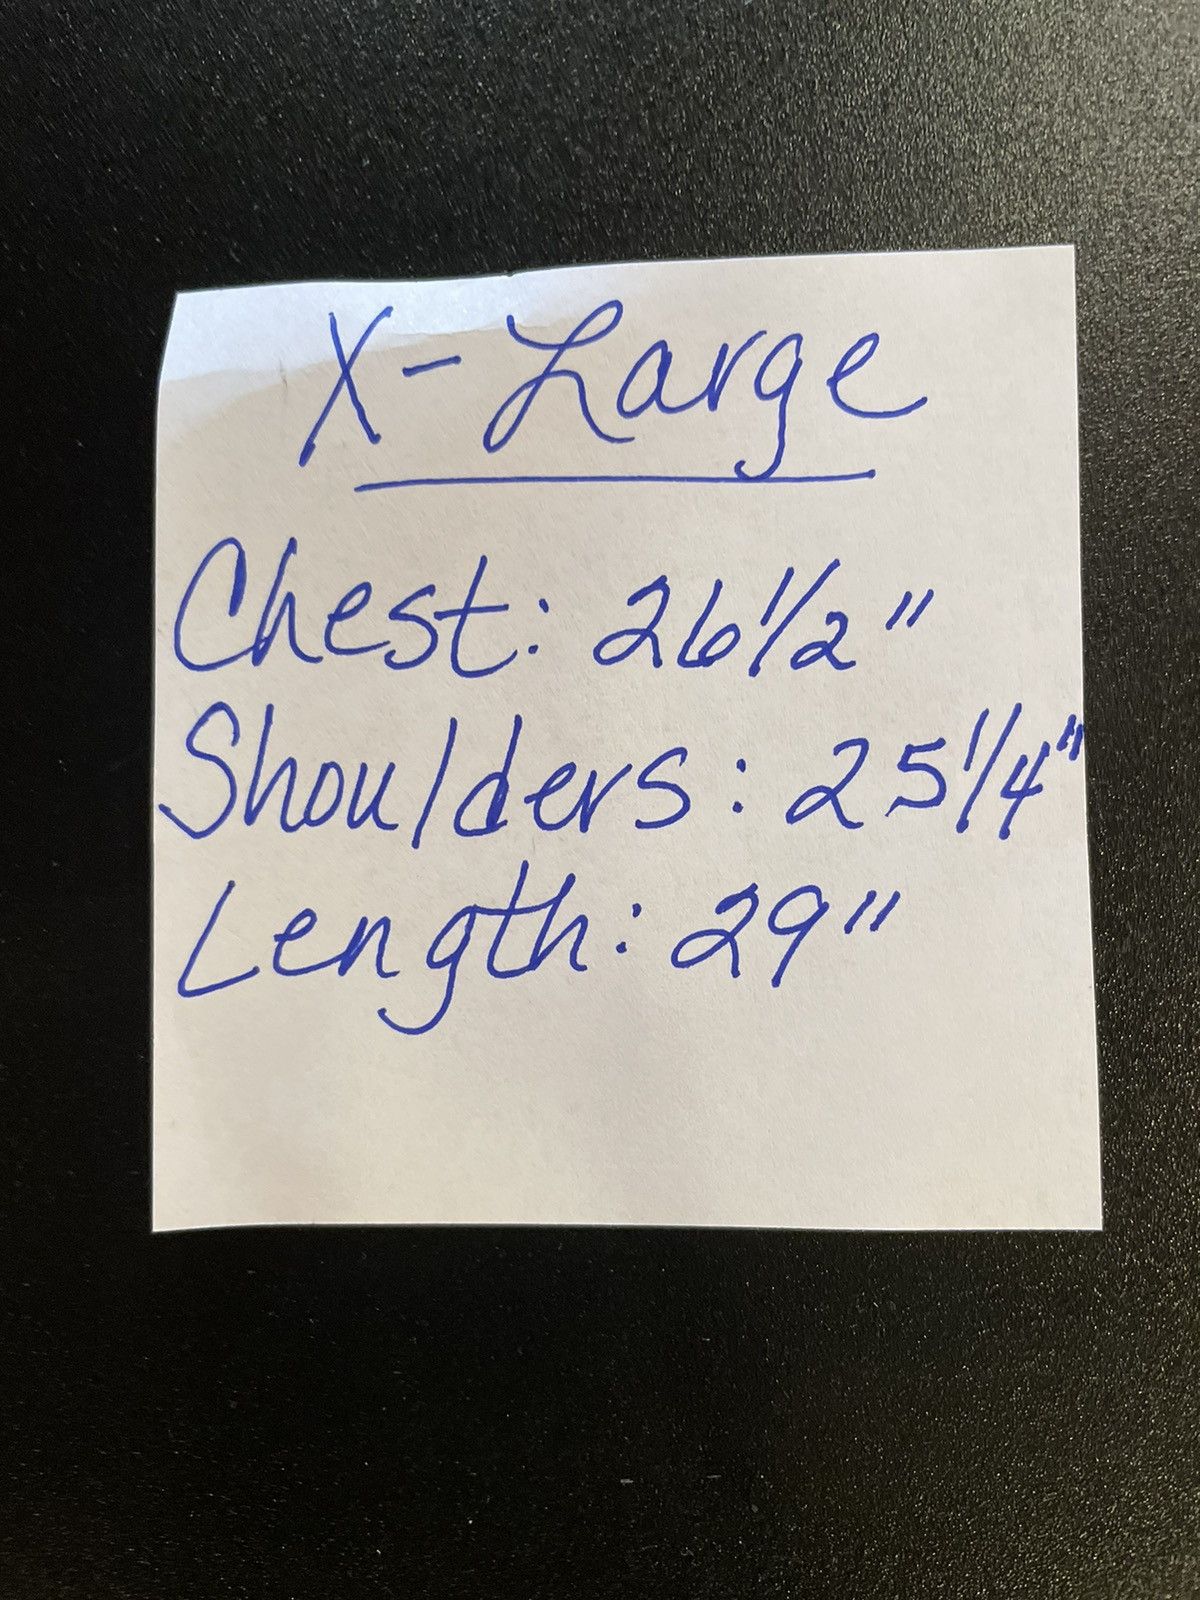 X-Large
Chest: 26 1/2"
Shoulders: 25 1/4"
Length: 29"